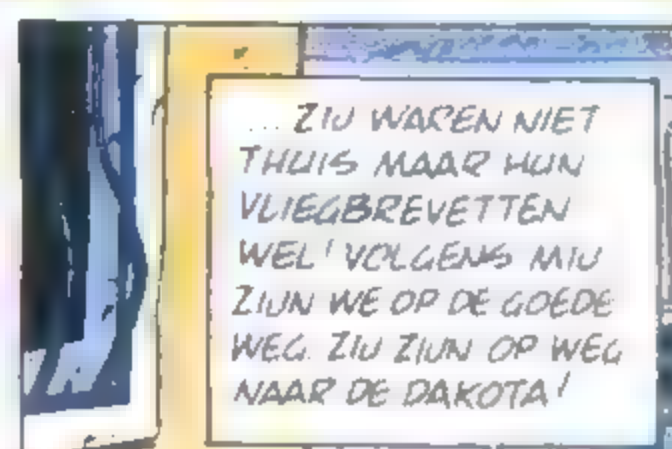 ... ZIJ WAREN NIET
THUIS MAAR HUN
VLIEGBREVETTEN
WEL! VOLGENS MIJ
ZIJN WE OP DE GOEDE
WEG. ZIJ ZIJN OP WEG
NAAR DE DAKOTA!